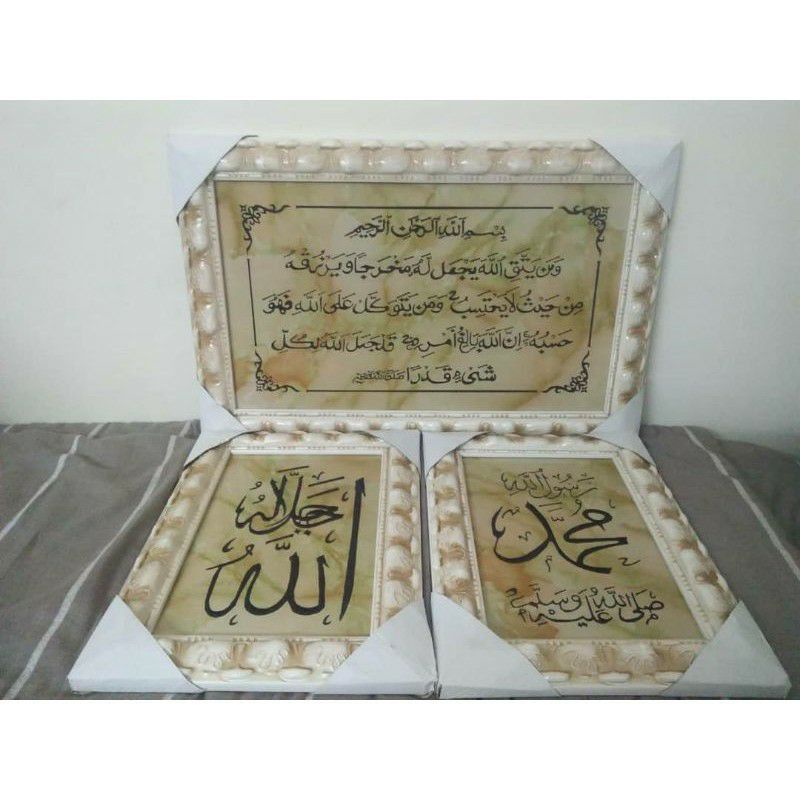 بِسْمِ اللَّهِ الرَّحْمَنِ الرَّحِيْمِ
وَمَنْ يَتَّقِ اللَّهَ يَجْعَلْ لَهُ مَخْرَجًا وَيَرْزُقْهُ
مِنْ حَيْثُ لَا يَحْتَسِبُ وَمَنْ يَتَوَكَّلْ عَلَى اللَّهِ فَهُوَ
حَسْبُهُ إِنَّ اللَّهَ بَالِغُ أَمْرِهِ قَدْ جَعَلَ اللَّهُ لِكُلِّ
شَيْءٍ قَدْرًا
جَلَّ جَلَالُهُ
اللَّه
رَسُوْلُ اللَّهِ
مُحَمَّد
صَلَّى اللَّهُ عَلَيْهِ وَسَلَّمَ